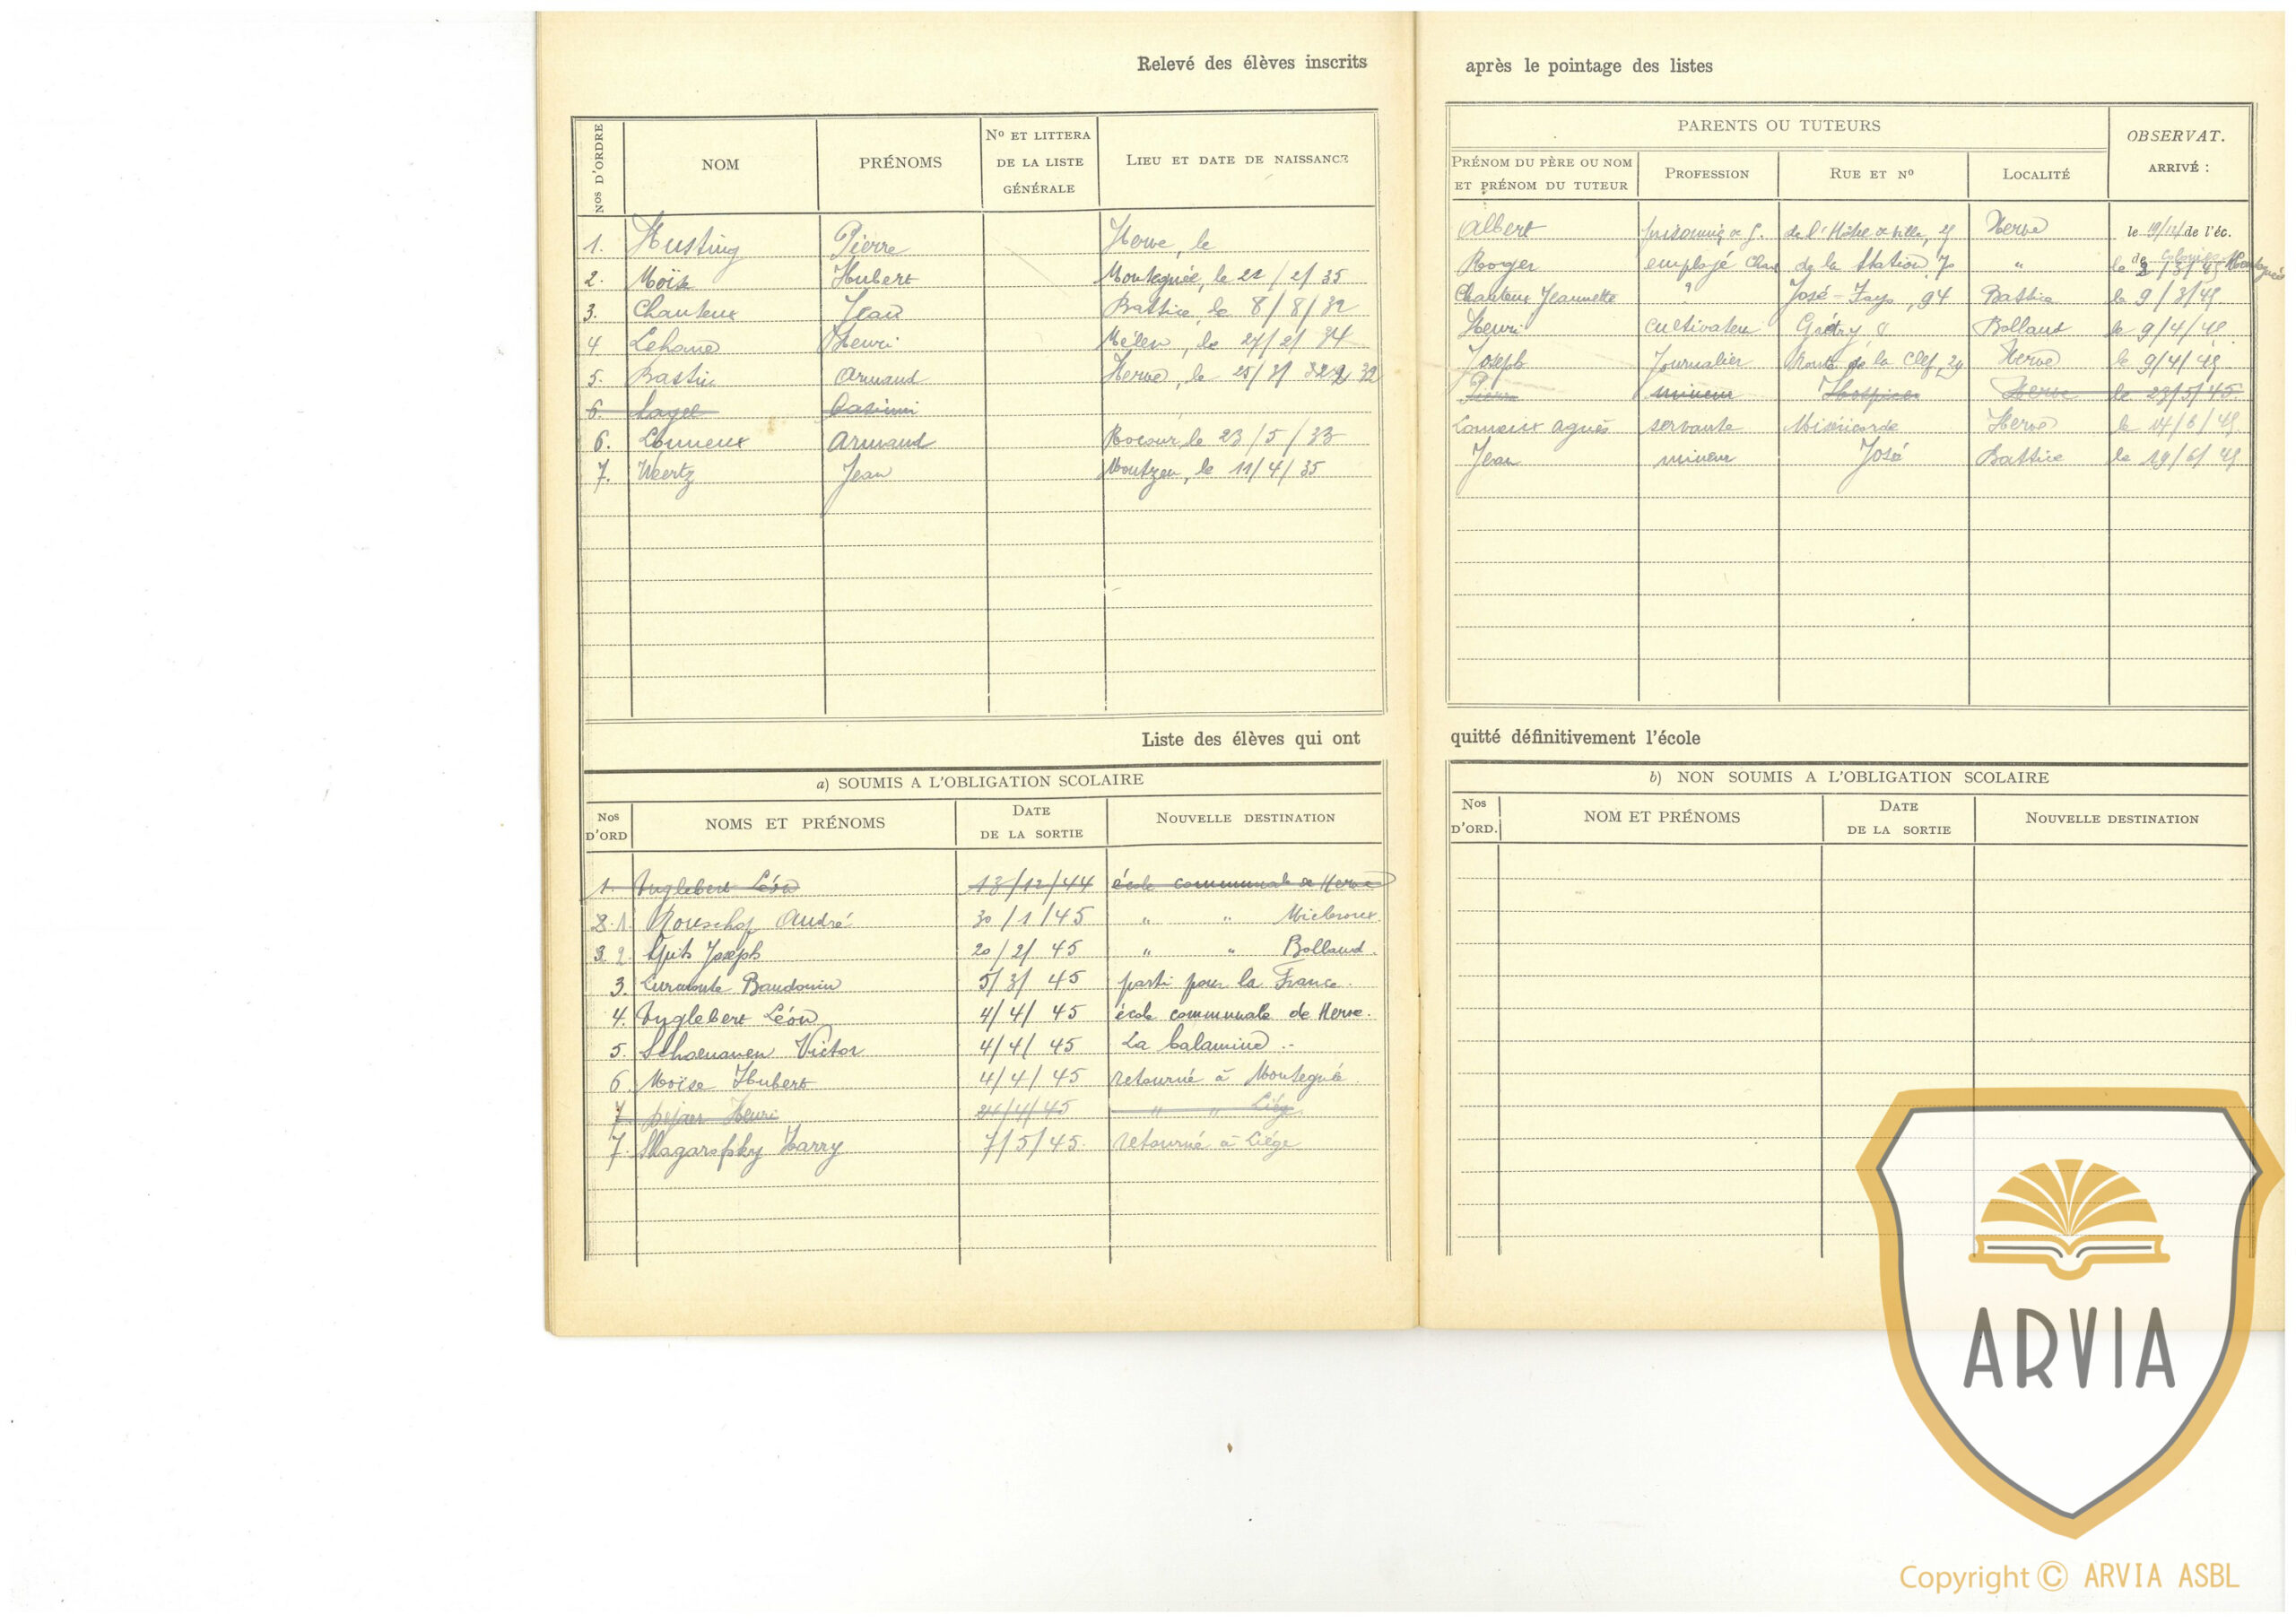 Relevé des élèves inscrits après le pointage des listes
Nos D'ORDRE NOM PRÉNOMS No ET LITTERA DE LA LISTE GÉNÉRALE LIEU ET DATE DE NAISSANCE
PARENTS OU TUTEURS
PRÉNOM DU PÈRE OU NOM ET PRÉNOM DU TUTEUR PROFESSION RUE ET No LOCALITÉ OBSERVAT. ARRIVÉ :
1. Husting Pierre Herve, le Albert de l'Hôtel de Ville, Herve le 19/12/ de l'éc.
2. Moïse Hubert Montegnée, le 22/2/35 Roger employé de la Station, 7 " le
3. Chanteux Jean Battice, le 8/8/32 Chanteux Jeannette ? José-Fays, 94 Battice le 9/3/45
4 Henri Mélen, le 27/2/34 Henri cultivateur Grétry, 8 Bolland le 9/4/45
5. Bastin Armand Herve, le 25/ 32 Joseph Journalier Route de la Clef, 29 Herve le 9/4/45
6. Casimir Pierre mineur Hospice Herve le 23/5/45.
6. Lonneux Armand Rocour, le 23/5/33 Lonneux Agnès servante Miséricorde Herve le 14/6/45
7. Weertz Jean Montzen, le 11/4/35 Jean mineur José Battice le 19/6/45
Liste des élèves qui ont quitté définitivement l'école
a) SOUMIS A L'OBLIGATION SCOLAIRE
Nos D'ORD NOMS ET PRÉNOMS DATE DE LA SORTIE NOUVELLE DESTINATION
1. Inglebert Léon 13/12/44 école communale de Herve
2. 1. André 30/1/45 " " Micheroux.
3. 2. Joseph 20/2/45 " " Bolland.
3. Baudouin 5/3/45 parti pour la France.
4. Inglebert Léon 4/4/45 école communale de Herve.
5. Schoenauen Victor 4/4/45 La Calamine.-
6. Moïse Hubert 4/4/45 retourné à Montegnée.
7. Dejaer Henri 24/4/45 " " Liége.
7. Harry 7/5/45. retourné à Liége
b) NON SOUMIS A L'OBLIGATION SCOLAIRE
Nos D'ORD. NOM ET PRÉNOMS DATE DE LA SORTIE NOUVELLE DESTINATION
ARVIA
Copyright © ARVIA ASBL